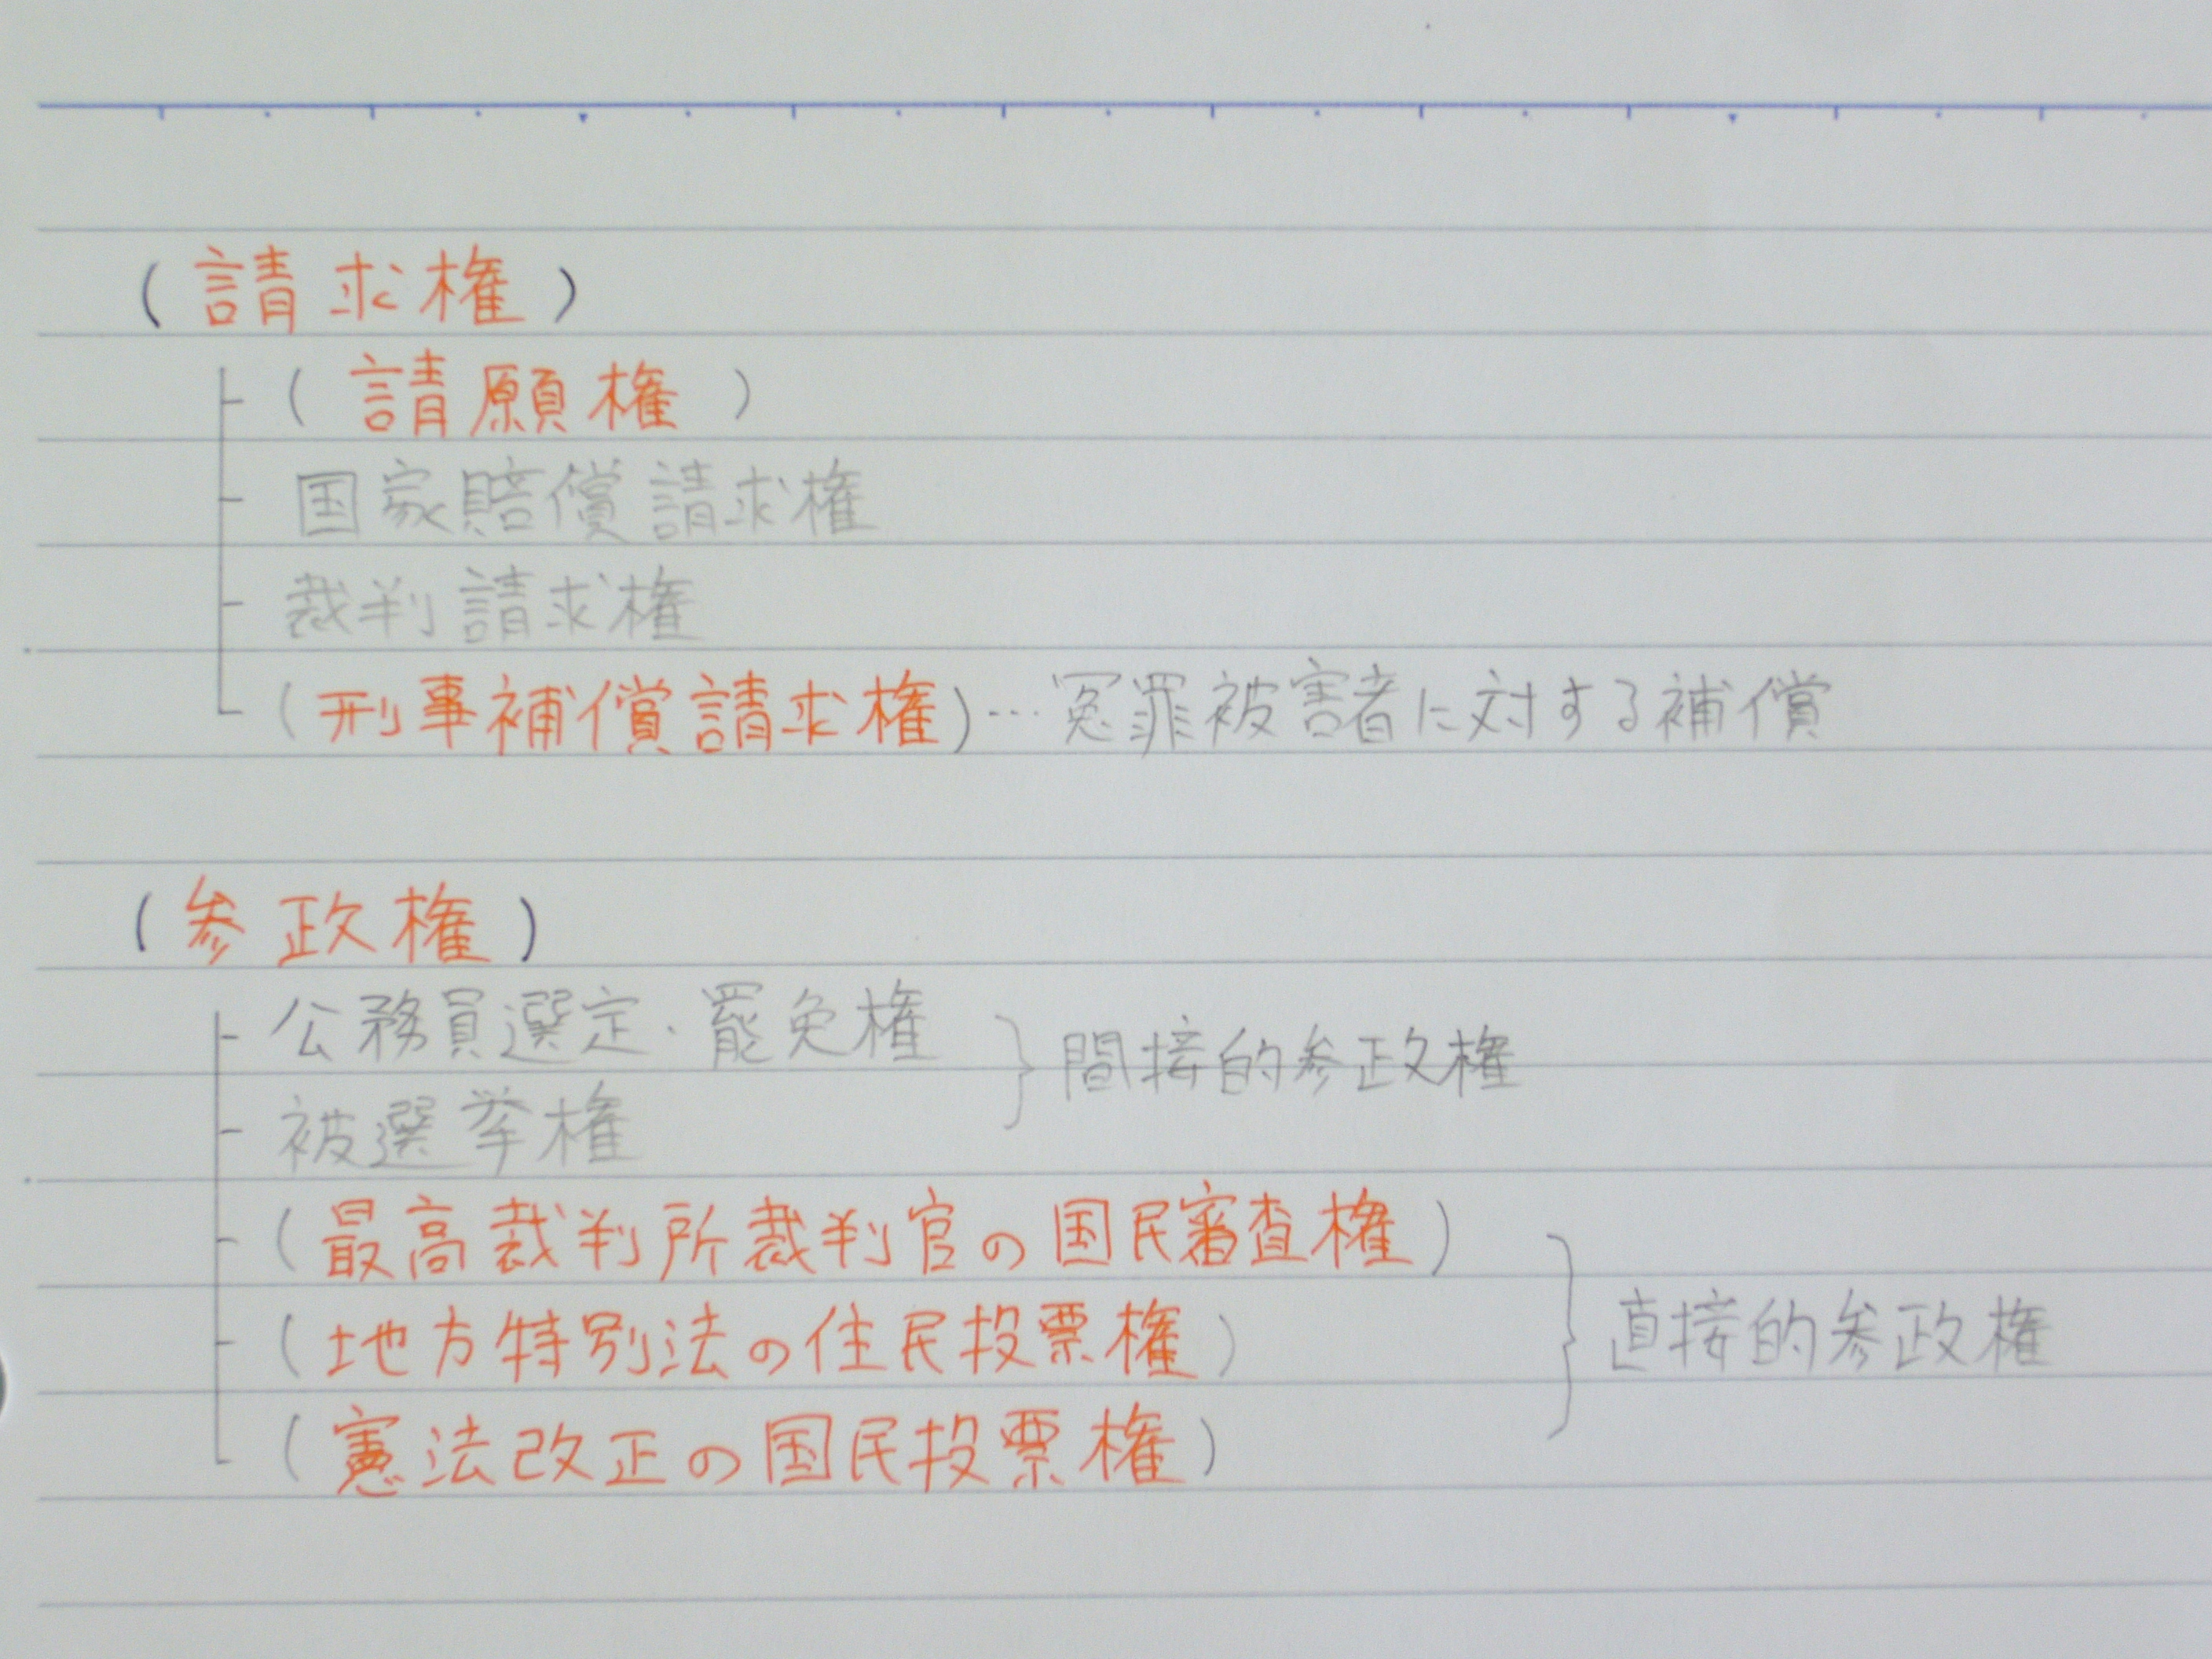 (請求権)
(請願権)
国家賠償請求権
裁判請求権
(刑事補償請求権)…冤罪被害者に対する補償
(参政権)
公務員選定・罷免権
被選挙権
間接的参政権
(最高裁判所裁判官の国民審査権)
(地方特別法の住民投票権)
直接的参政権
(憲法改正の国民投票権)